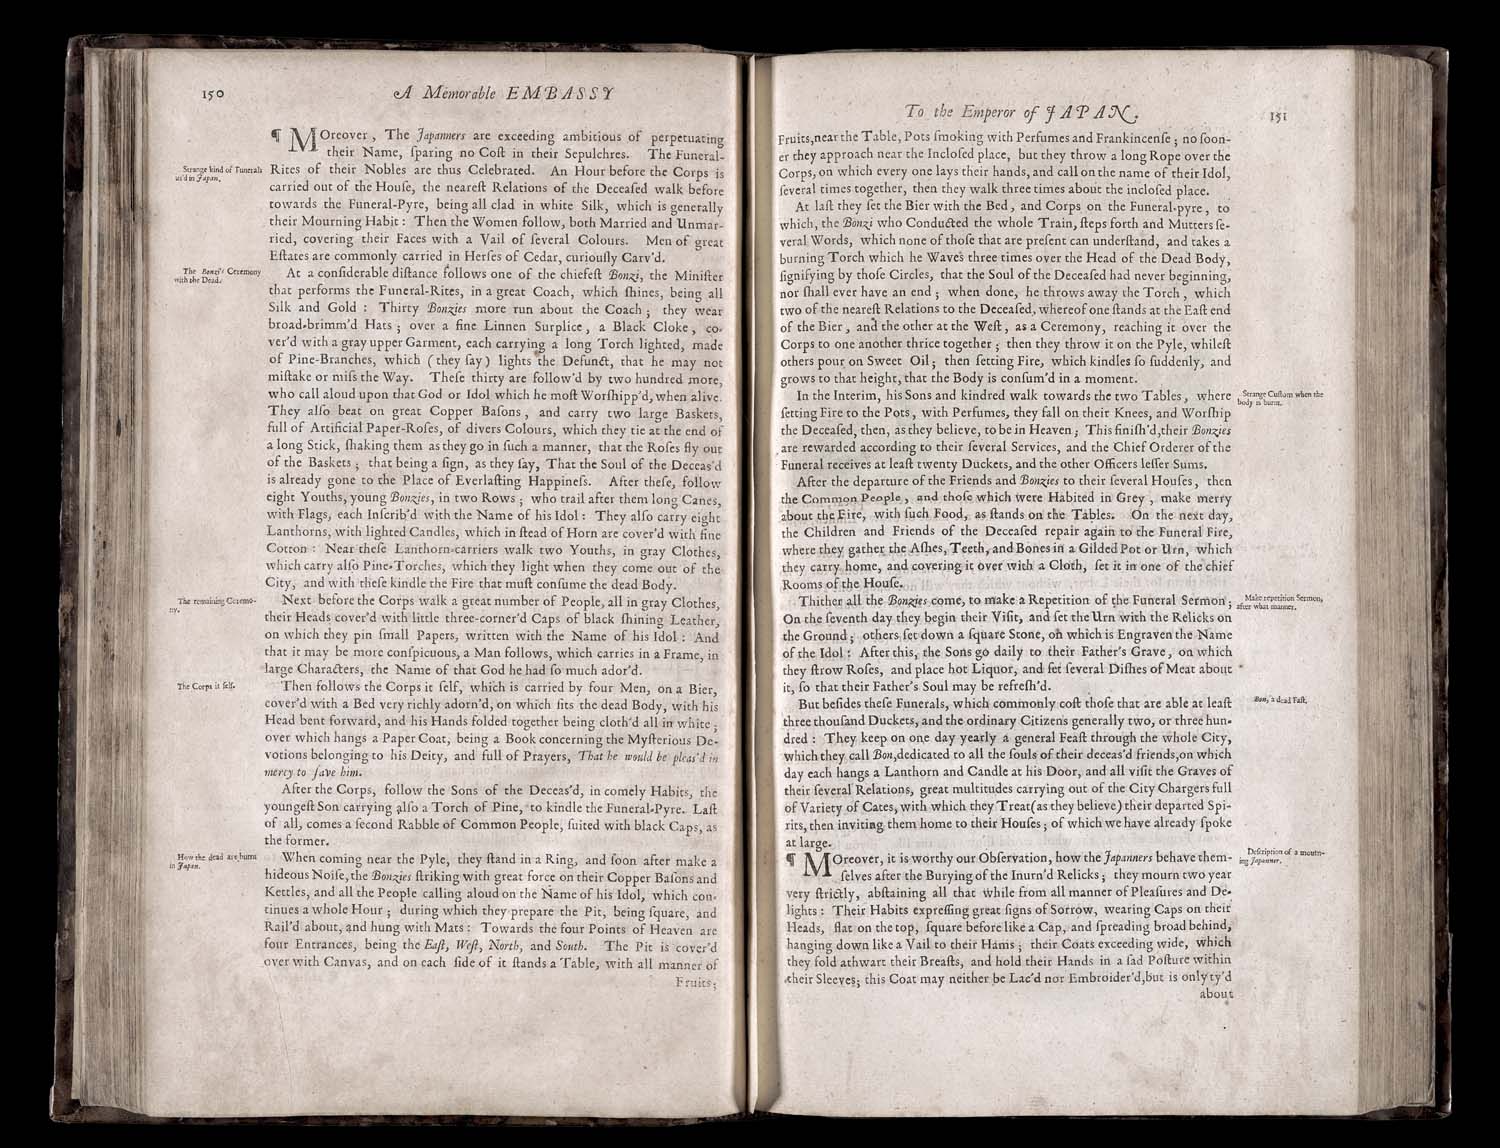 150
A Memorable EMBASSY
¶ MOreover, The Japanners are exceeding ambitious of perpetuating
their Name, ſparing no Coſt in their Sepulchres. The Funeral-
Strange kind of Funerals
us'd in Japan.
Rites of their Nobles are thus Celebrated. An Hour before the Corps is
carried out of the Houſe, the neareſt Relations of the Deceaſed walk before
towards the Funeral-Pyre, being all clad in white Silk, which is generally
their Mourning Habit: Then the Women follow, both Married and Unmar-
ried, covering their Faces with a Vail of ſeveral Colours. Men of great
Eſtates are commonly carried in Herſes of Cedar, curiouſly Carv'd.
The Bonzi's Ceremony
with the Dead.
At a conſiderable diſtance follows one of the chiefeſt Bonzi, the Miniſter
that performs the Funeral-Rites, in a great Coach, which ſhines, being all
Silk and Gold: Thirty Bonzies more run about the Coach; they wear
broad-brimm'd Hats; over a fine Linnen Surplice, a Black Cloke, co-
ver'd with a gray upper Garment, each carrying a long Torch lighted, made
of Pine-Branches, which (they ſay) lights the Defunct, that he may not
miſtake or miſs the Way. Theſe thirty are follow'd by two hundred more,
who call aloud upon that God or Idol which he moſt Worſhipp'd, when alive.
They alſo beat on great Copper Baſons, and carry two large Baskets,
full of Artificial Paper-Roſes, of divers Colours, which they tie at the end of
a long Stick, ſhaking them as they go in ſuch a manner, that the Roſes fly out
of the Baskets; that being a ſign, as they ſay, That the Soul of the Deceas'd
is already gone to the Place of Everlaſting Happineſs. After theſe, follow
eight Youths, young Bonzies, in two Rows; who trail after them long Canes,
with Flags, each Inſcrib'd with the Name of his Idol: They alſo carry eight
Lanthorns, with lighted Candles, which in ſtead of Horn are cover'd with fine
Cotton: Near theſe Lanthorn-carriers walk two Youths, in gray Clothes,
which carry alſo Pine-Torches, which they light when they come out of the
City, and with theſe kindle the Fire that muſt conſume the dead Body.
The remaining Ceremo-
ny.
Next before the Corps walk a great number of People, all in gray Clothes,
their Heads cover'd with little three-corner'd Caps of black ſhining Leather,
on which they pin ſmall Papers, written with the Name of his Idol: And
that it may be more conſpicuous, a Man follows, which carries in a Frame, in
large Characters, the Name of that God he had ſo much ador'd.
The Corps it ſelf.
Then follows the Corps it ſelf, which is carried by four Men, on a Bier,
cover'd with a Bed very richly adorn'd, on which ſits the dead Body, with his
Head bent forward, and his Hands folded together being cloth'd all in white;
over which hangs a Paper Coat, being a Book concerning the Myſterious De-
votions belonging to his Deity, and full of Prayers, That he would be pleas'd in
mercy to ſave him.
After the Corps, follow the Sons of the Deceas'd, in comely Habits, the
youngeſt Son carrying alſo a Torch of Pine, to kindle the Funeral-Pyre. Laſt
of all, comes a ſecond Rabble of Common People, ſuited with black Caps, as
the former.
How the dead are burnt
in Japan.
When coming near the Pyle, they ſtand in a Ring, and ſoon after make a
hideous Noiſe, the Bonzies ſtriking with great force on their Copper Baſons and
Kettles, and all the People calling aloud on the Name of his Idol, which con-
tinues a whole Hour; during which they prepare the Pit, being ſquare, and
Rail'd about, and hung with Mats: Towards the four Points of Heaven are
four Entrances, being the Eaſt, Weſt, North, and South. The Pit is cover'd
over with Canvas, and on each ſide of it ſtands a Table, with all manner of
Fruits;
To the Emperor of JAPAN.
151
Fruits, near the Table, Pots ſmoking with Perfumes and Frankincenſe; no ſoon-
er they approach near the Incloſed place, but they throw a long Rope over the
Corps, on which every one lays their hands, and call on the name of their Idol,
ſeveral times together, then they walk three times about the incloſed place.
At laſt they ſet the Bier with the Bed, and Corps on the Funeral-pyre, to
which, the Bonzi who Conducted the whole Train, ſteps forth and Mutters ſe-
veral Words, which none of thoſe that are preſent can underſtand, and takes a
burning Torch which he Waves three times over the Head of the Dead Body,
ſignifying by thoſe Circles, that the Soul of the Deceaſed had never beginning,
nor ſhall ever have an end; when done, he throws away the Torch, which
two of the neareſt Relations to the Deceaſed, whereof one ſtands at the Eaſt end
of the Bier, and the other at the Weſt, as a Ceremony, reaching it over the
Corps to one another thrice together; then they throw it on the Pyle, whileſt
others pour on Sweet Oil; then ſetting Fire, which kindles ſo ſuddenly, and
grows to that height, that the Body is conſum'd in a moment.
In the Interim, his Sons and kindred walk towards the two Tables, where
Strange Cuſtom when the
body is burnt.
ſetting Fire to the Pots, with Perfumes, they fall on their Knees, and Worſhip
the Deceaſed, then, as they believe, to be in Heaven; This finiſh'd, their Bonzies
are rewarded according to their ſeveral Services, and the Chief Orderer of the
Funeral receives at leaſt twenty Duckets, and the other Officers leſſer Sums.
After the departure of the Friends and Bonzies to their ſeveral Houſes, then
the Common People, and thoſe which were Habited in Grey, make merry
about the Fire, with ſuch Food, as ſtands on the Tables. On the next day,
the Children and Friends of the Deceaſed repair again to the Funeral Fire,
where they gather the Aſhes, Teeth, and Bones in a Gilded Pot or Urn, which
they carry home, and covering it over with a Cloth, ſet it in one of the chief
Rooms of the Houſe.
Thither all the Bonzies come, to make a Repetition of the Funeral Sermon;
Make repetition Sermon,
after what manner.
On the ſeventh day they begin their Viſit, and ſet the Urn with the Relicks on
the Ground; others ſet down a ſquare Stone, on which is Engraven the Name
of the Idol: After this, the Sons go daily to their Father's Grave, on which
they ſtrow Roſes, and place hot Liquor, and ſet ſeveral Diſhes of Meat about
it, ſo that their Father's Soul may be refreſh'd.
But beſides theſe Funerals, which commonly coſt thoſe that are able at leaſt
Bon, a dead Faſt.
three thouſand Duckets, and the ordinary Citizens generally two, or three hun-
dred: They keep on one day yearly a general Feaſt through the whole City,
which they call Bon, dedicated to all the ſouls of their deceas'd friends, on which
day each hangs a Lanthorn and Candle at his Door, and all viſit the Graves of
their ſeveral Relations, great multitudes carrying out of the City Chargers full
of Variety of Cates, with which they Treat (as they believe) their departed Spi-
rits, then inviting them home to their Houſes; of which we have already ſpoke
at large.
¶ MOreover, it is worthy our Obſervation, how the Japanners behave them-
Deſcription of a mourn-
ing Japanner.
ſelves after the Burying of the Inurn'd Relicks; they mourn two year
very ſtrictly, abſtaining all that while from all manner of Pleaſures and De-
lights: Their Habits expreſſing great ſigns of Sorrow, wearing Caps on their
Heads, flat on the top, ſquare before like a Cap, and ſpreading broad behind,
hanging down like a Vail to their Hams; their Coats exceeding wide, which
they fold athwart their Breaſts, and hold their Hands in a ſad Poſture within
their Sleeves; this Coat may neither be Lac'd nor Embroider'd, but is only ty'd
about